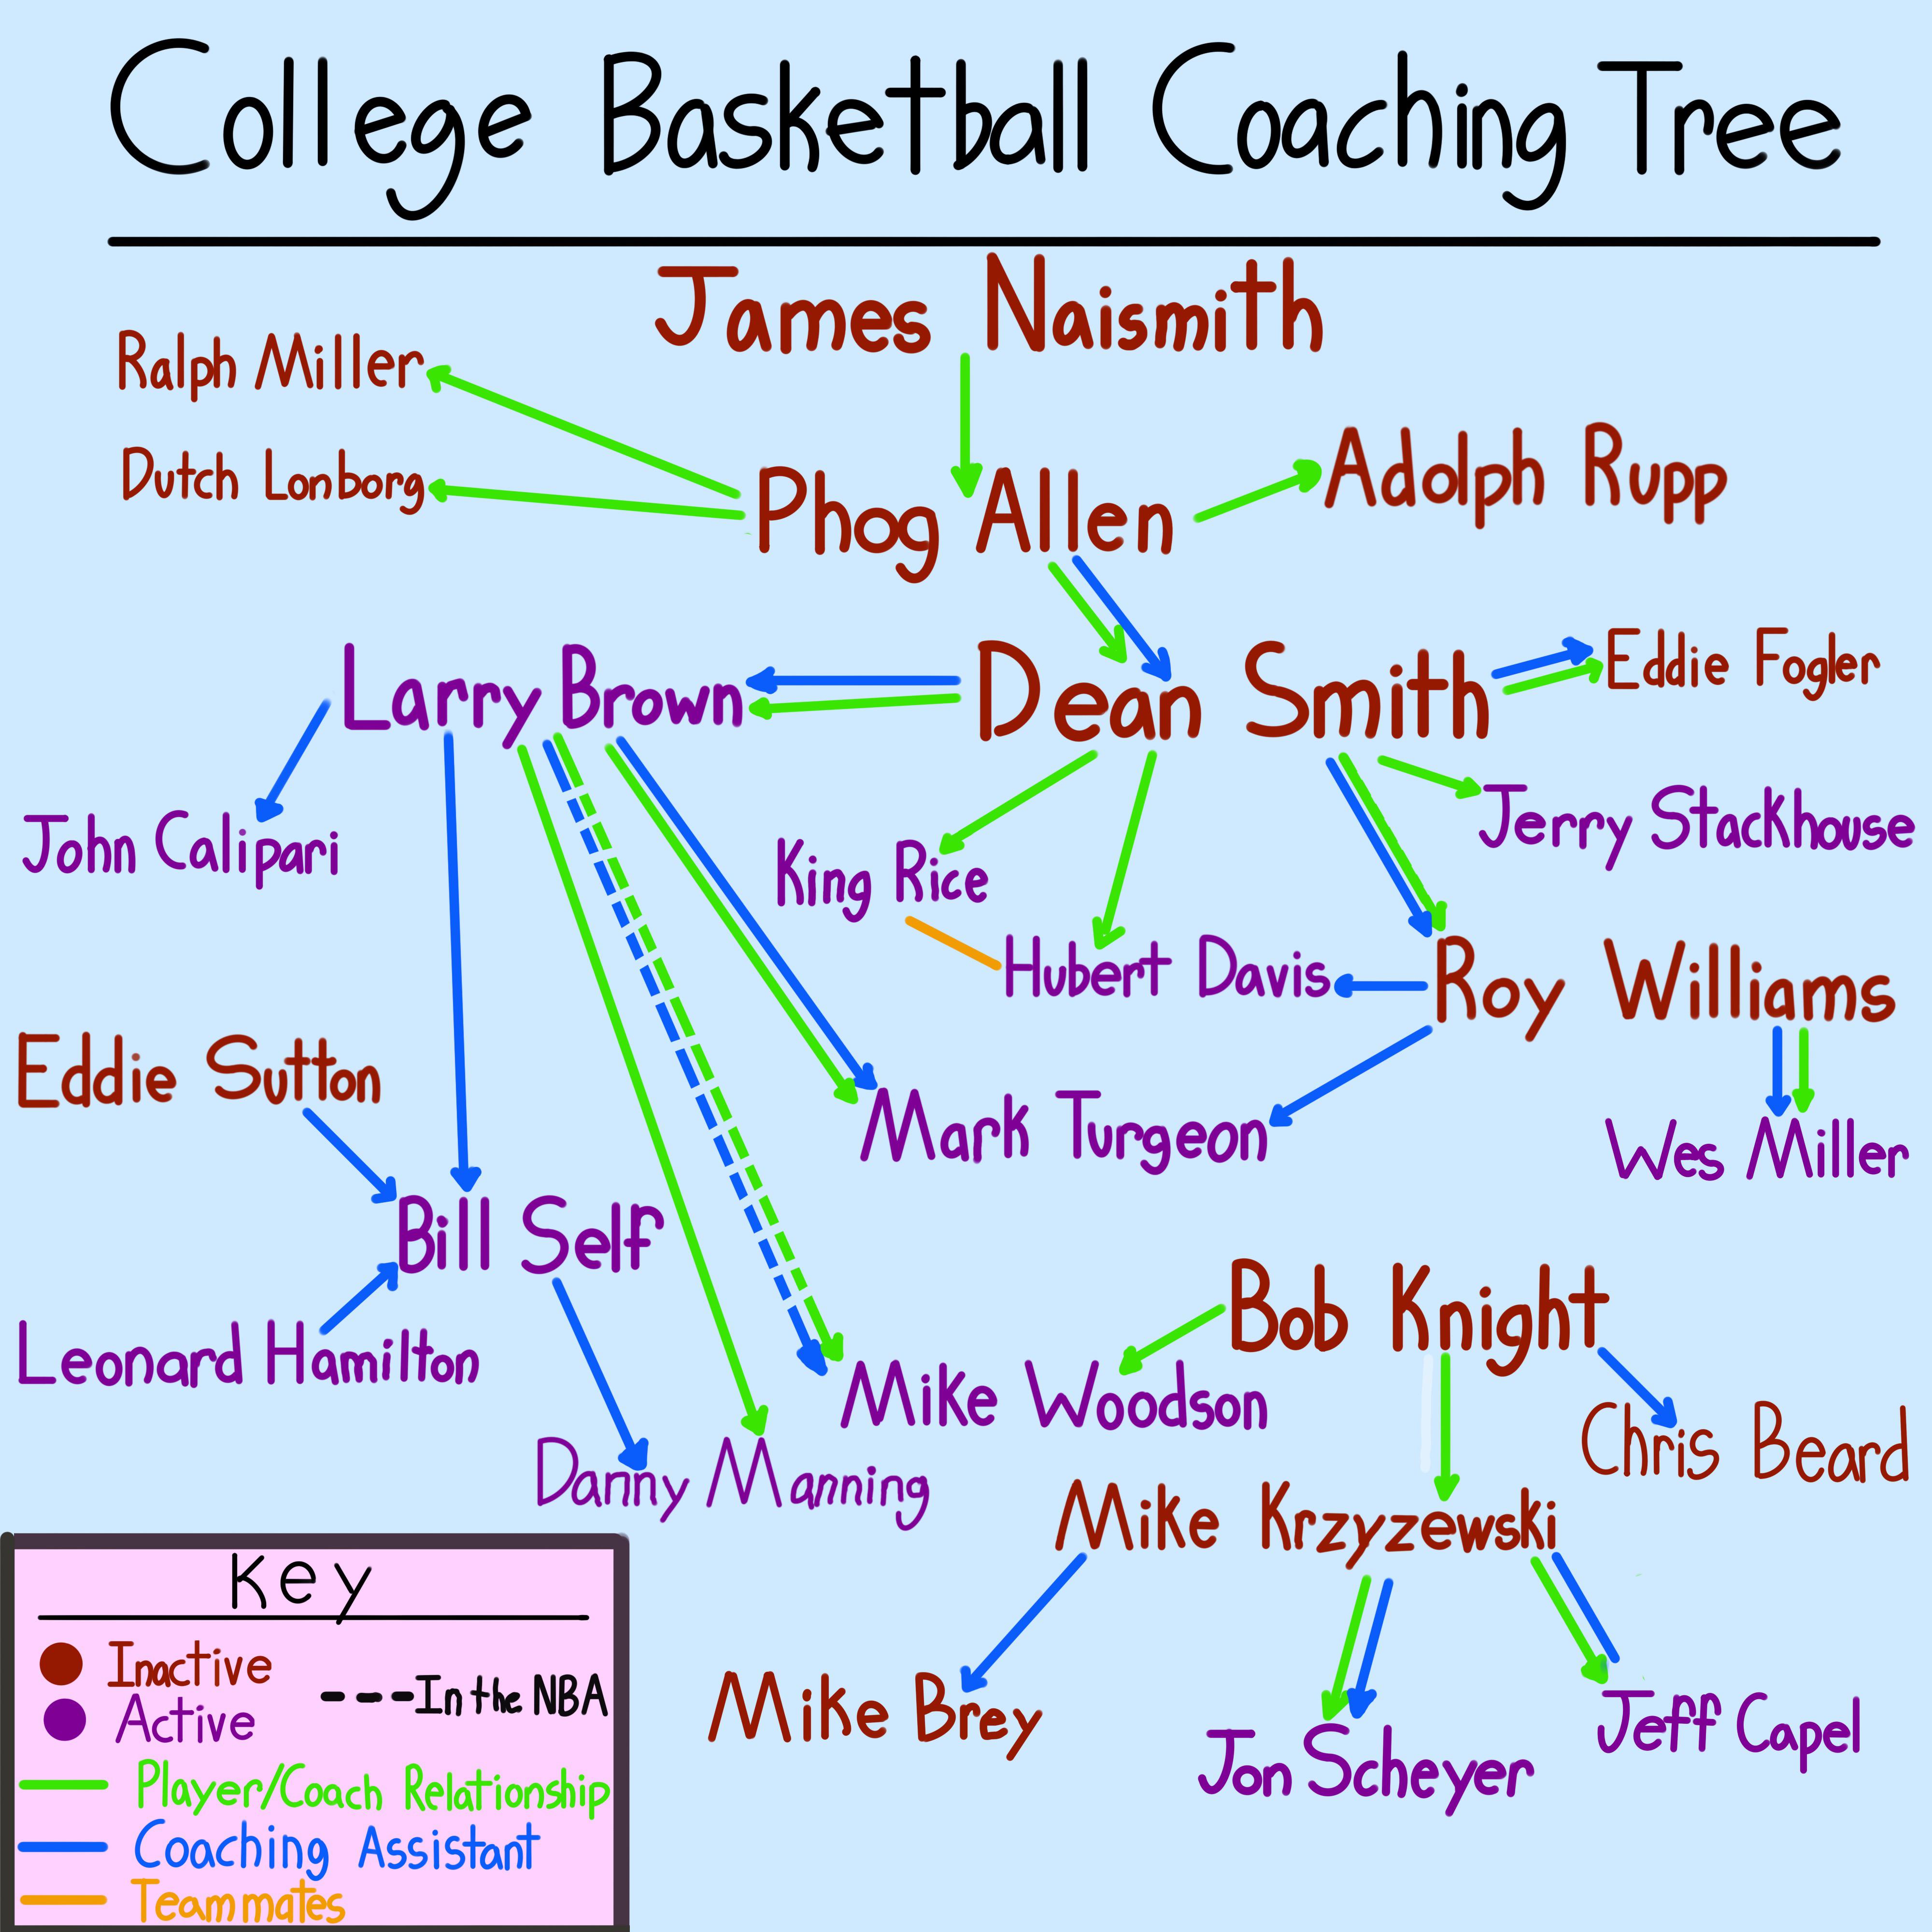 College Basketball Coaching Tree
James Naismith
Ralph Miller
Dutch Lonborg
Phog Allen
Adolph Rupp
Larry Brown
Dean Smith
Eddie Fogler
John Calipari
King Rice
Jerry Stackhouse
Hubert Davis
Roy Williams
Eddie Sutton
Mark Turgeon
Wes Miller
Bill Self
Bob Knight
Leonard Hamilton
Mike Woodson
Chris Beard
Danny Manning
Mike Krzyzewski
Mike Brey
Jon Scheyer
Jeff Capel
Key
Inactive
Active
---In the NBA
Player/Coach Relationship
Coaching Assistant
Teammates